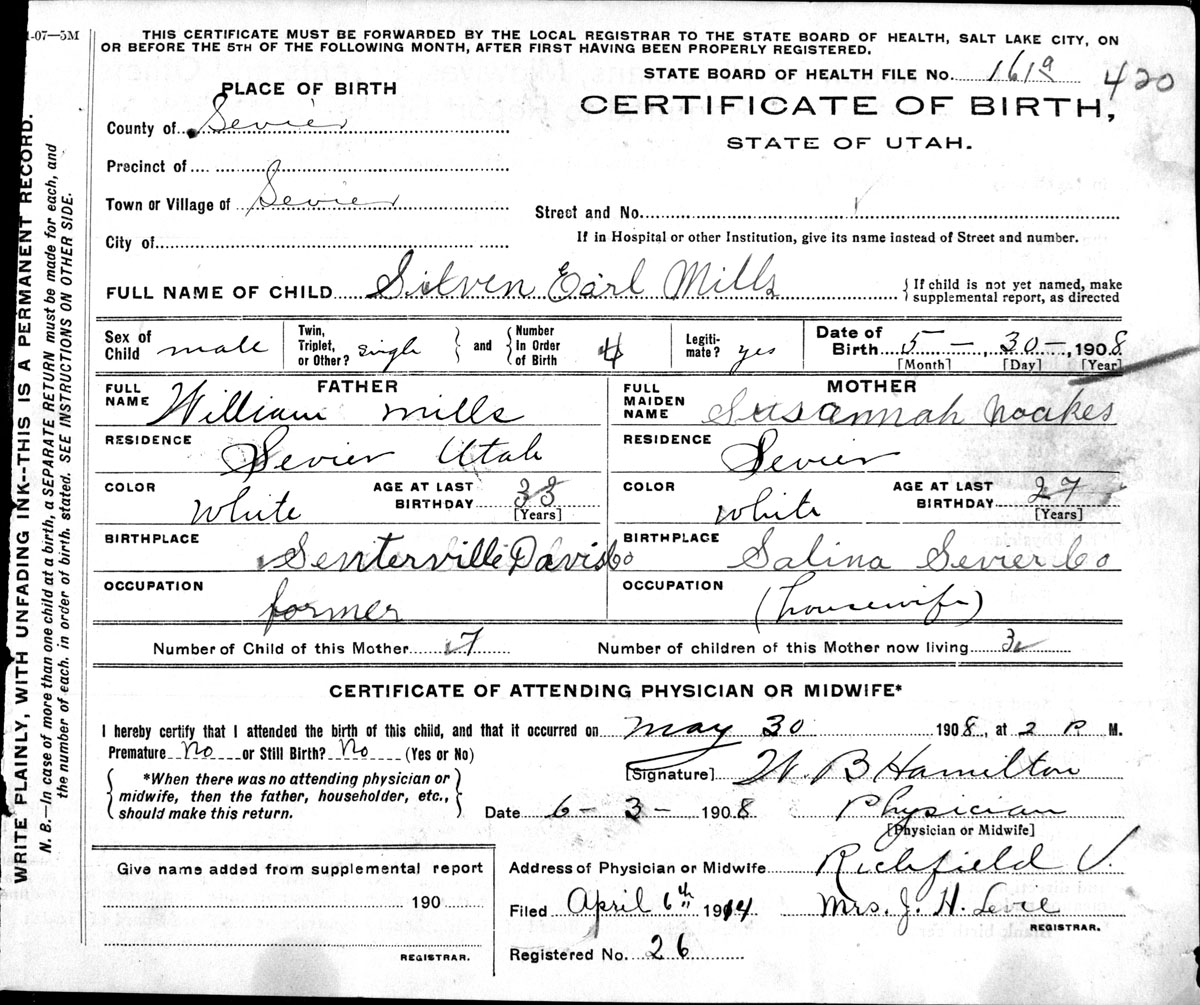 1-07—5M
THIS CERTIFICATE MUST BE FORWARDED BY THE LOCAL REGISTRAR TO THE STATE BOARD OF HEALTH, SALT LAKE CITY, ON
OR BEFORE THE 5TH OF THE FOLLOWING MONTH, AFTER FIRST HAVING BEEN PROPERLY REGISTERED.
STATE BOARD OF HEALTH FILE No. 161a 420
PLACE OF BIRTH
CERTIFICATE OF BIRTH,
STATE OF UTAH.
County of Sevier
Precinct of
Town or Village of Sevier
Street and No.
City of
If in Hospital or other Institution, give its name instead of Street and number.
FULL NAME OF CHILD Silven Earl Mills { If child is not yet named, make
supplemental report, as directed
Sex of Child male Twin, Triplet, or Other? single } and { Number In Order of Birth 4 Legiti-mate? yes Date of Birth 5 — 30 —, 1908
[Month] [Day] [Year]
FATHER
FULL NAME William Mills
MOTHER
FULL MAIDEN NAME Susannah Noakes
RESIDENCE Sevier Utah
RESIDENCE Sevier
COLOR White AGE AT LAST BIRTHDAY 33 [Years]
COLOR White AGE AT LAST BIRTHDAY 27 [Years]
BIRTHPLACE Senterville Davis Co
BIRTHPLACE Salina Sevier Co
OCCUPATION former
OCCUPATION (housewife)
Number of Child of this Mother 7 Number of children of this Mother now living 3
CERTIFICATE OF ATTENDING PHYSICIAN OR MIDWIFE*
I hereby certify that I attended the birth of this child, and that it occurred on May 30 1908, at 2 P M.
Premature No or Still Birth? No (Yes or No)
{ *When there was no attending physician or
midwife, then the father, householder, etc.,
should make this return. }
[Signature] W. B Hamilton
Date 6 — 3 — 1908 Physician
[Physician or Midwife]
Give name added from supplemental report
190
REGISTRAR.
Address of Physician or Midwife Richfield U.
Filed April 6th 1914 Mrs. J. H. Levie
REGISTRAR.
Registered No. 26
WRITE PLAINLY, WITH UNFADING INK--THIS IS A PERMANENT RECORD.
N. B.—In case of more than one child at a birth, a SEPARATE RETURN must be made for each, and
the number of each, in order of birth, stated. SEE INSTRUCTIONS ON OTHER SIDE.